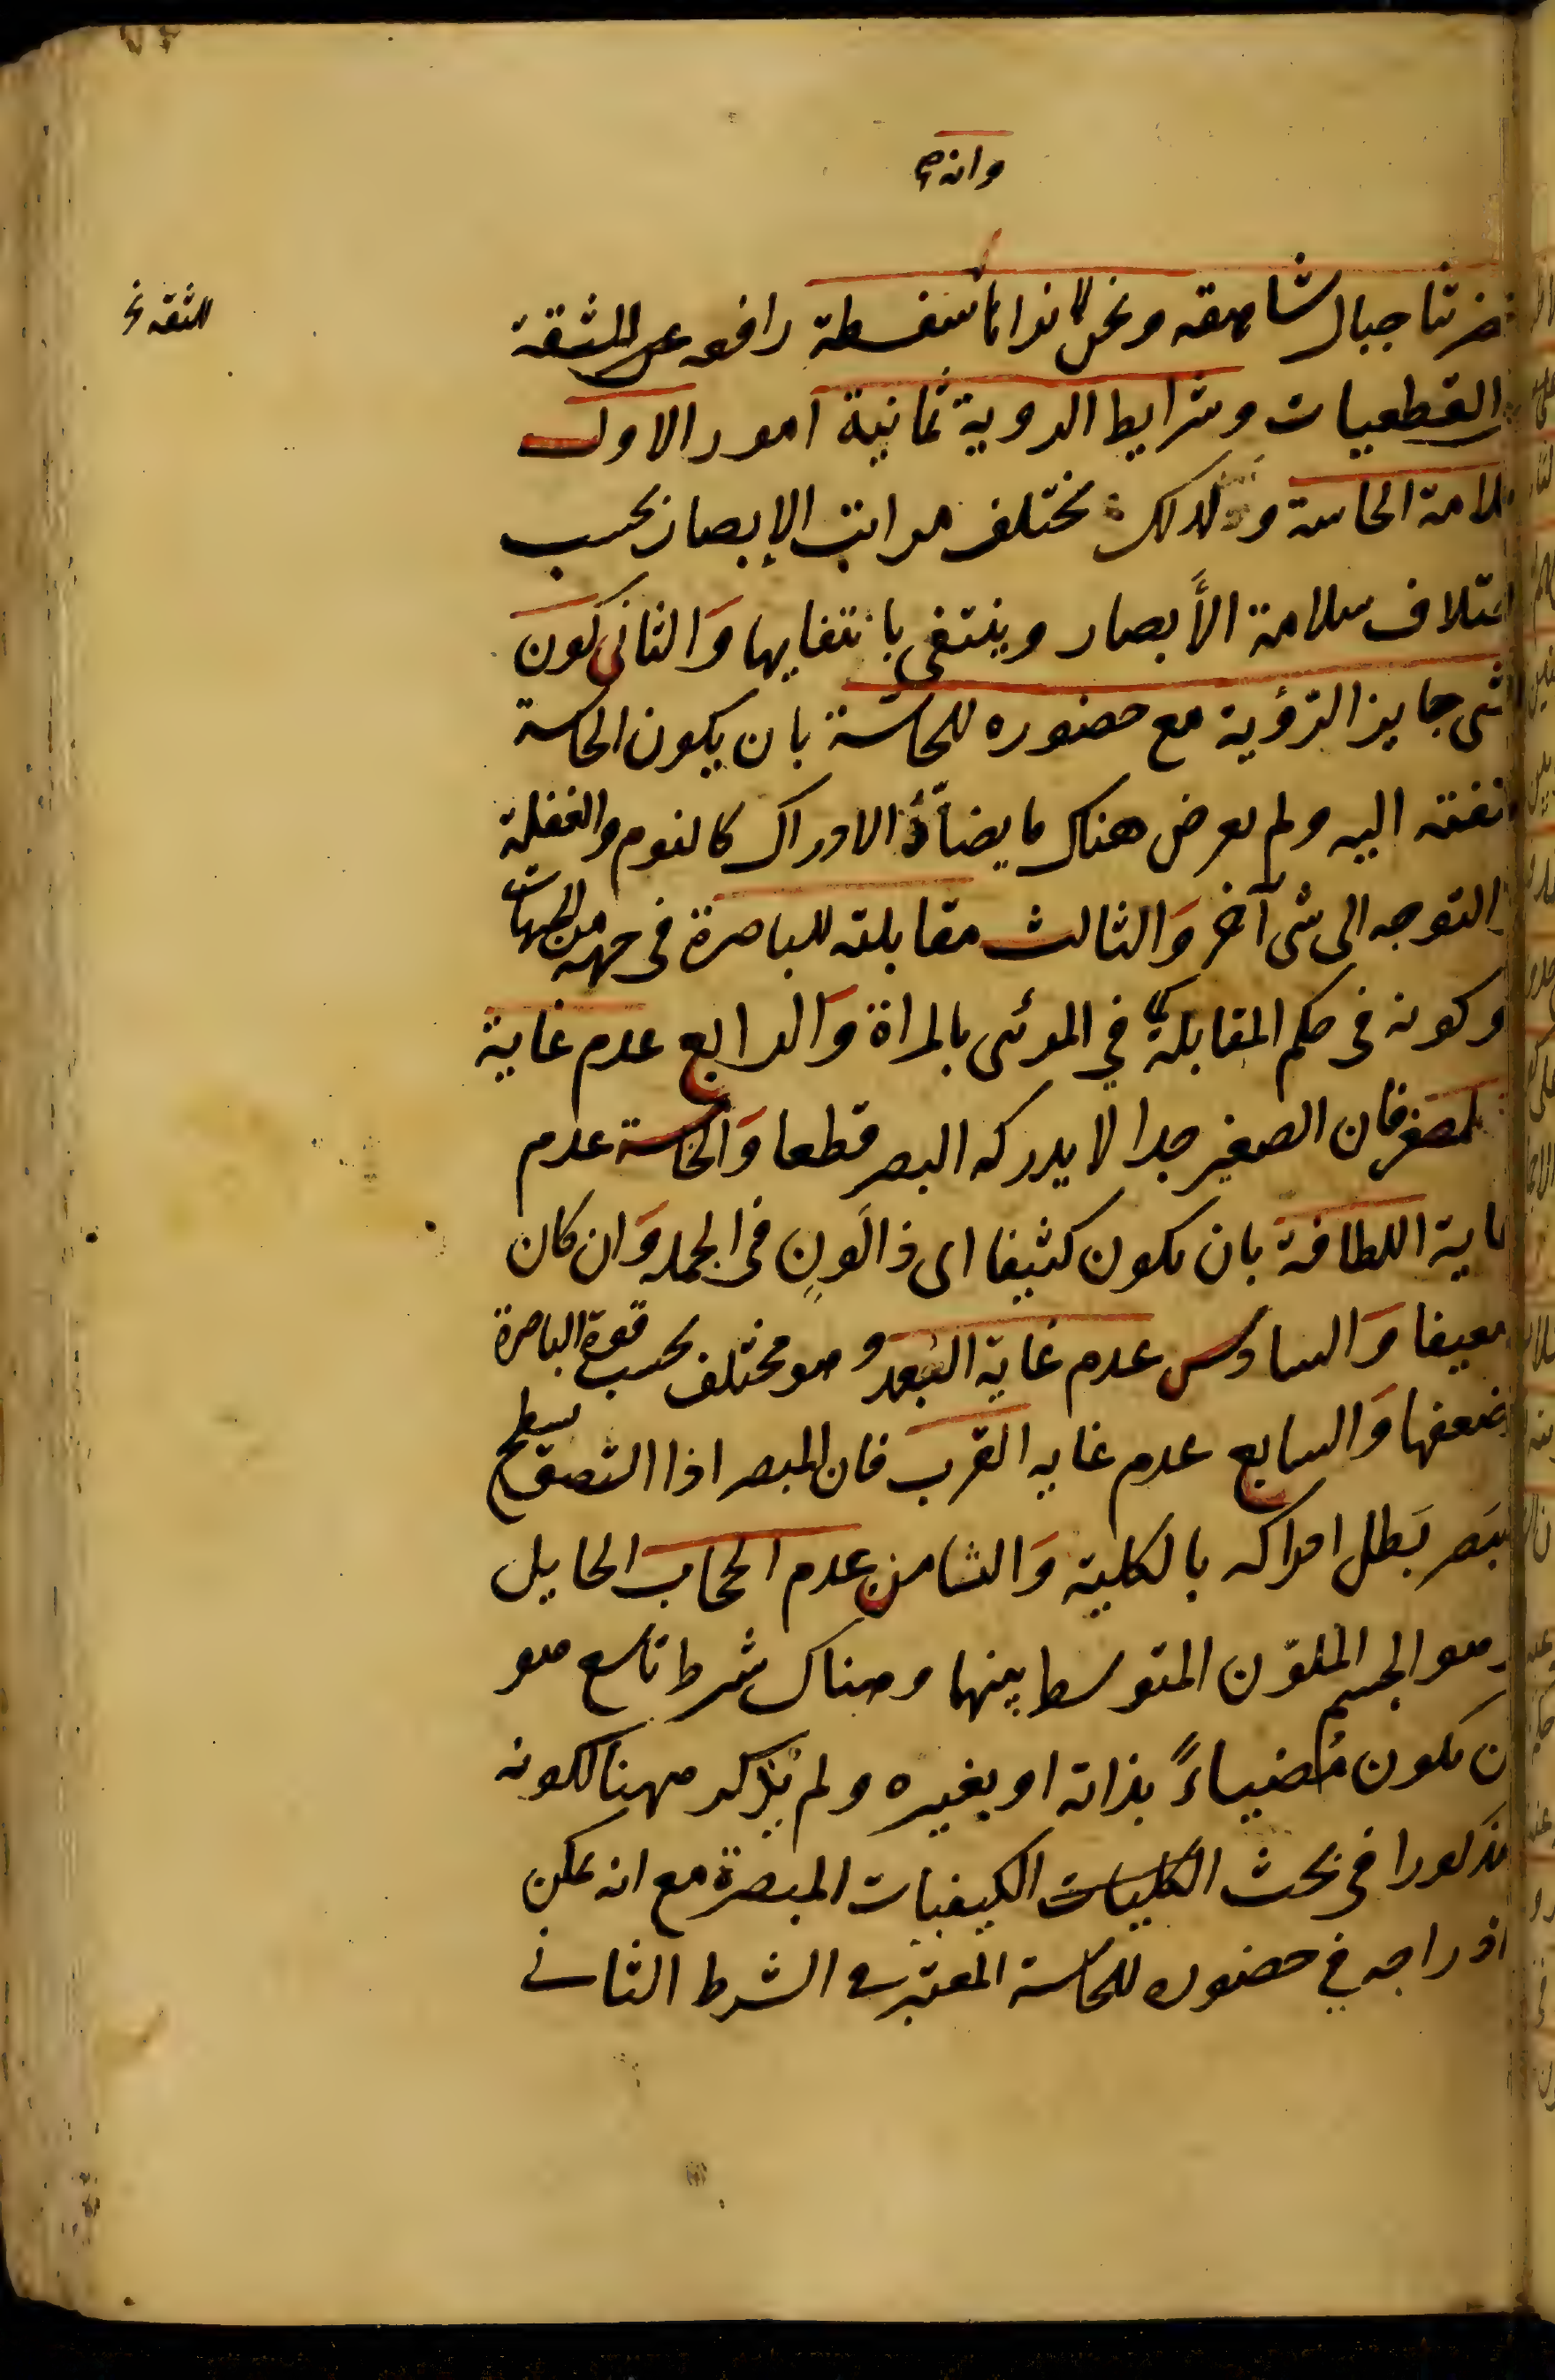 وانه
حضرتنا جبال شاهقه ونحن لا نراها سفسطة رافعه عن للثقة
للثقه خ
القطعيات وشرايط الروية ثمانية امور الاول
سلامة الحاسة ولذلك يختلف مراتب الإبصار بحسب
اختلاف سلامة الأبصار وينتفى بانتفايها وَالثانى كون
الشى جايز الرؤية مع حضوره للحاسّة بان يكون الحاسة
ملتفتة اليه ولم يعرض هناك ما يضادّ الادراك كالنوم والغفلة
والتوجه الى شى آخر وَالثالث مقابلته للباصرة فى جهة من الجهات
او كونه فى حكم المقابلة كما في المرئى بالمراة وَالرابع عدم غاية
الصغر فان الصغير جدا لا يدركه البصر قطعا وَالخامسة عدم
غاية اللطافة بان يكون كثيفا اى ذا لَونٍ فى الجمله وَان كان
ضعيفا وَالسادس عدم غاية البُعد وهو مختلف بحسب قوة الباصرة
وضعفها وَالسابع عدم غايه القرب فان المبصر اذا التصق بسطح
البَصر بَطل ادراكه بالكلية وَالثامن عدم الحجاب الحايل
وهو الجسم الملوّن المتوسط بينهما وهناك شرط تاسع هو
ان يكون مُضياءً بذاته او بغيره ولم يُذكر ههنا لكونه
مذكورا فى بحث الكليات الكيفيات المبصرة مع انه يمكن
ادراجه في حضوره للحاسة المعتبر فى الشرط الثانى